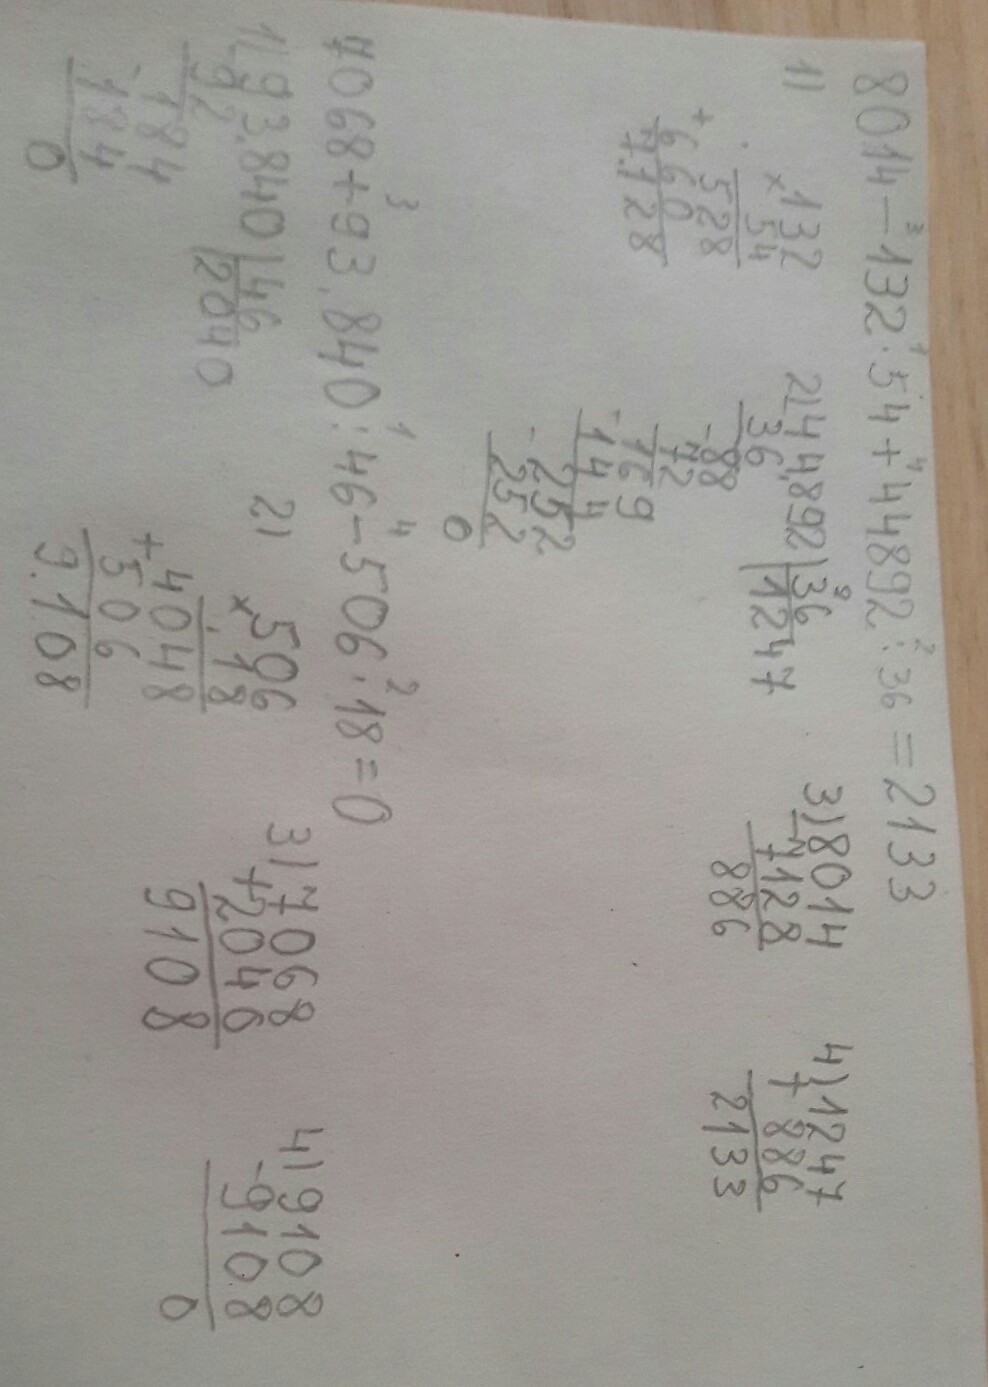 8014-132·54+44892:36=2133
3 1 4 2
1) 132
×54
528
+660
7128
2) 44892|36
36 |1247
-88
72
-169
144
-252
252
0
3) 8014
-7128
886
4) 1247
+886
2133
7068+93.840:46-506·18=0
3 1 4 2
1) 93.840|46
92 |2040
184
-184
0
2) 506
×18
4048
+506
9.108
3) 7068
+2046
9108
4) 9108
-9108
0